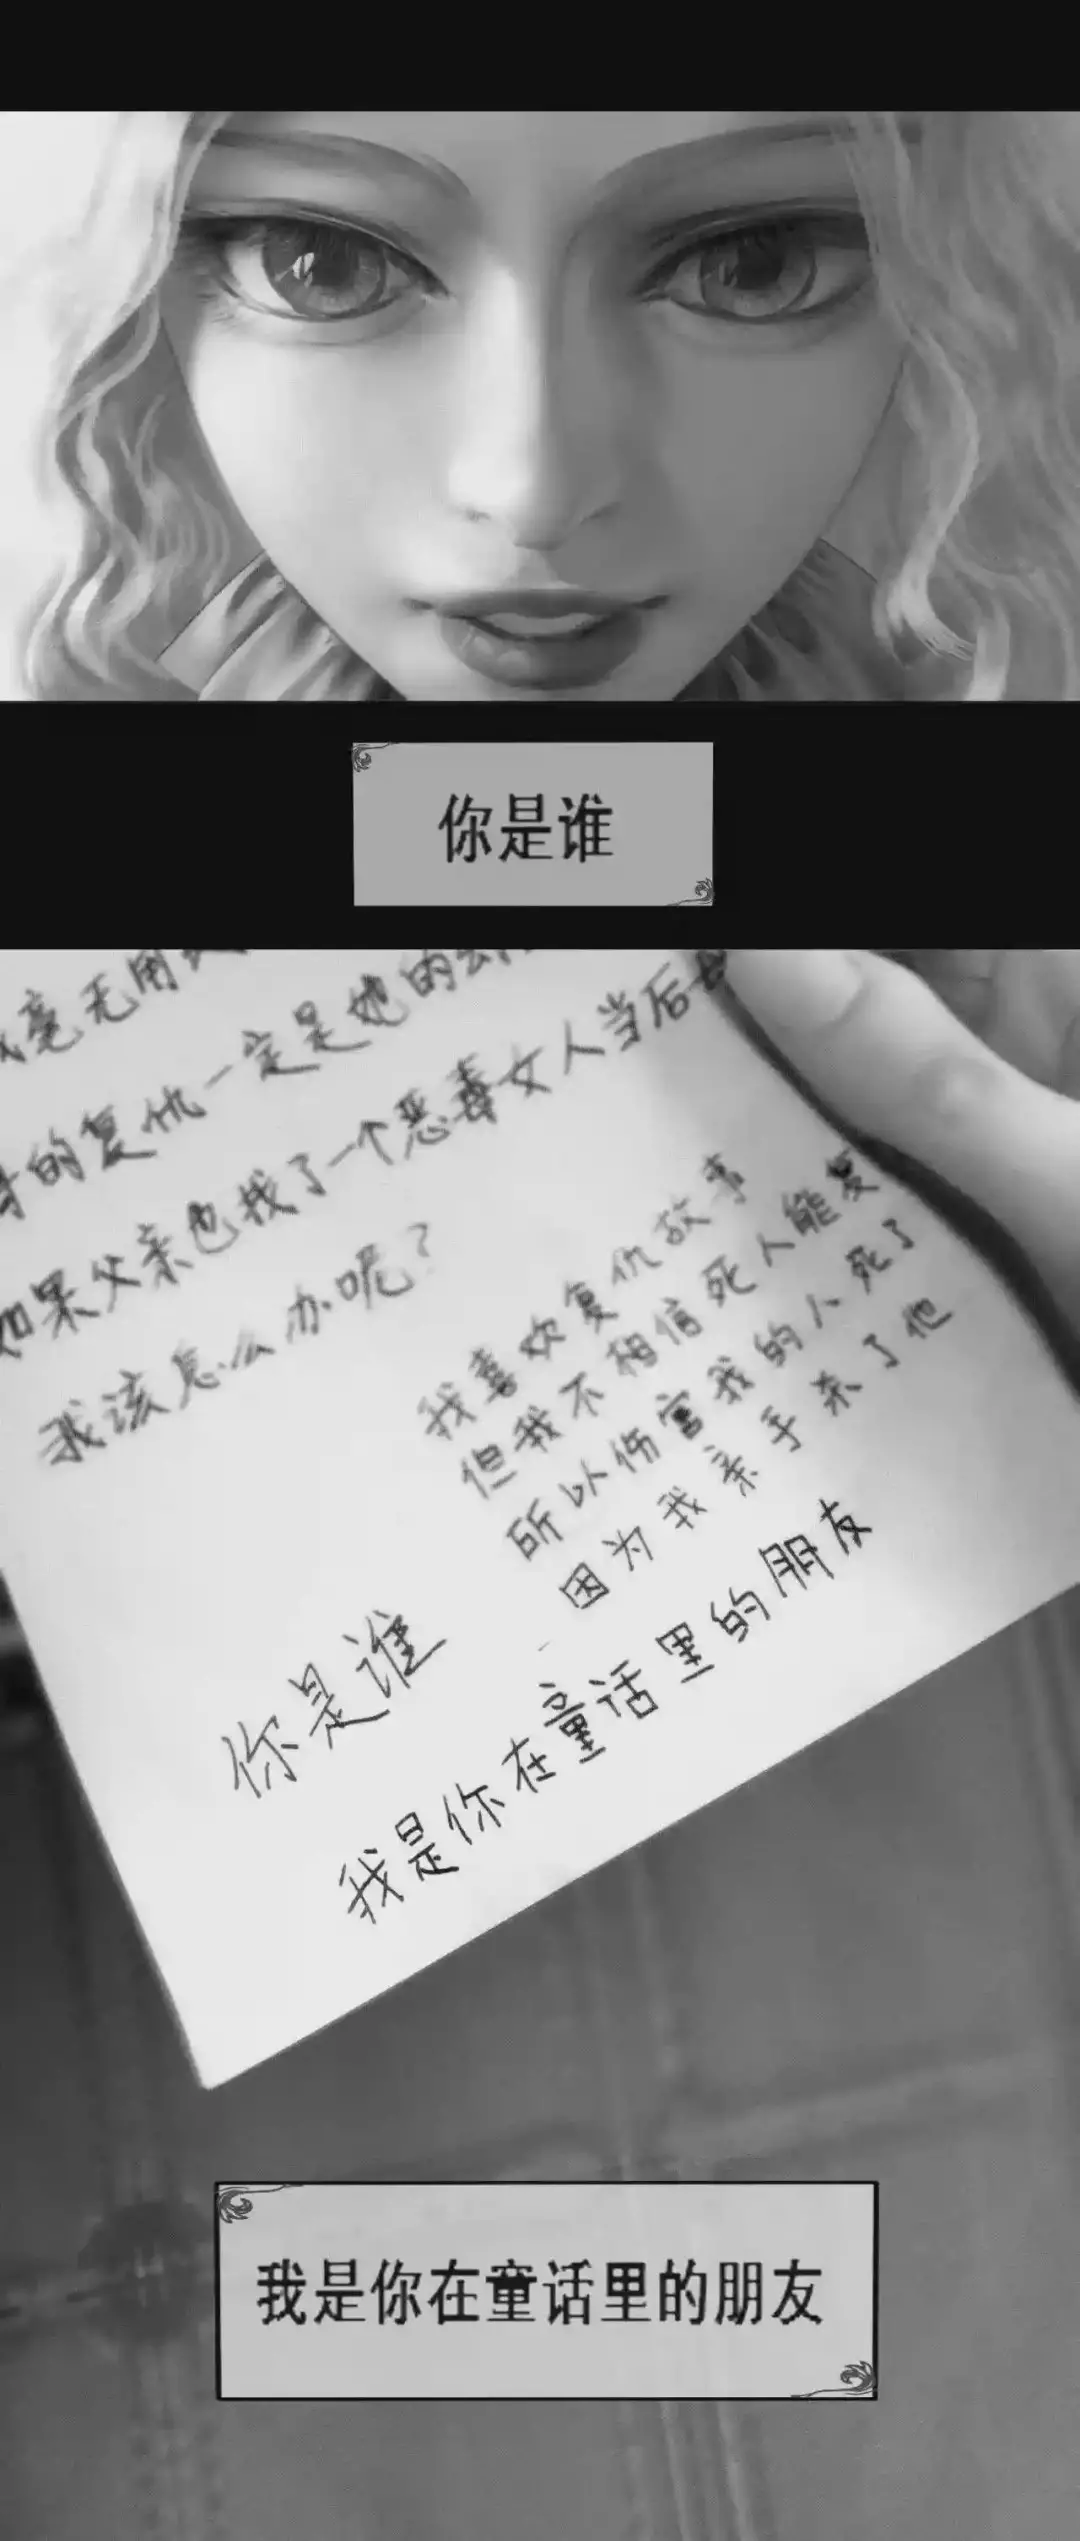 你是谁
毫无用
的复仇一定是她的
如果父亲也找了一个恶毒女人当后
我该怎么办呢？
我喜欢复仇故事
但我不相信死人能复
所以伤害我的人死了
因为我亲手杀了他
你是谁
我是你在童话里的朋友
我是你在童话里的朋友